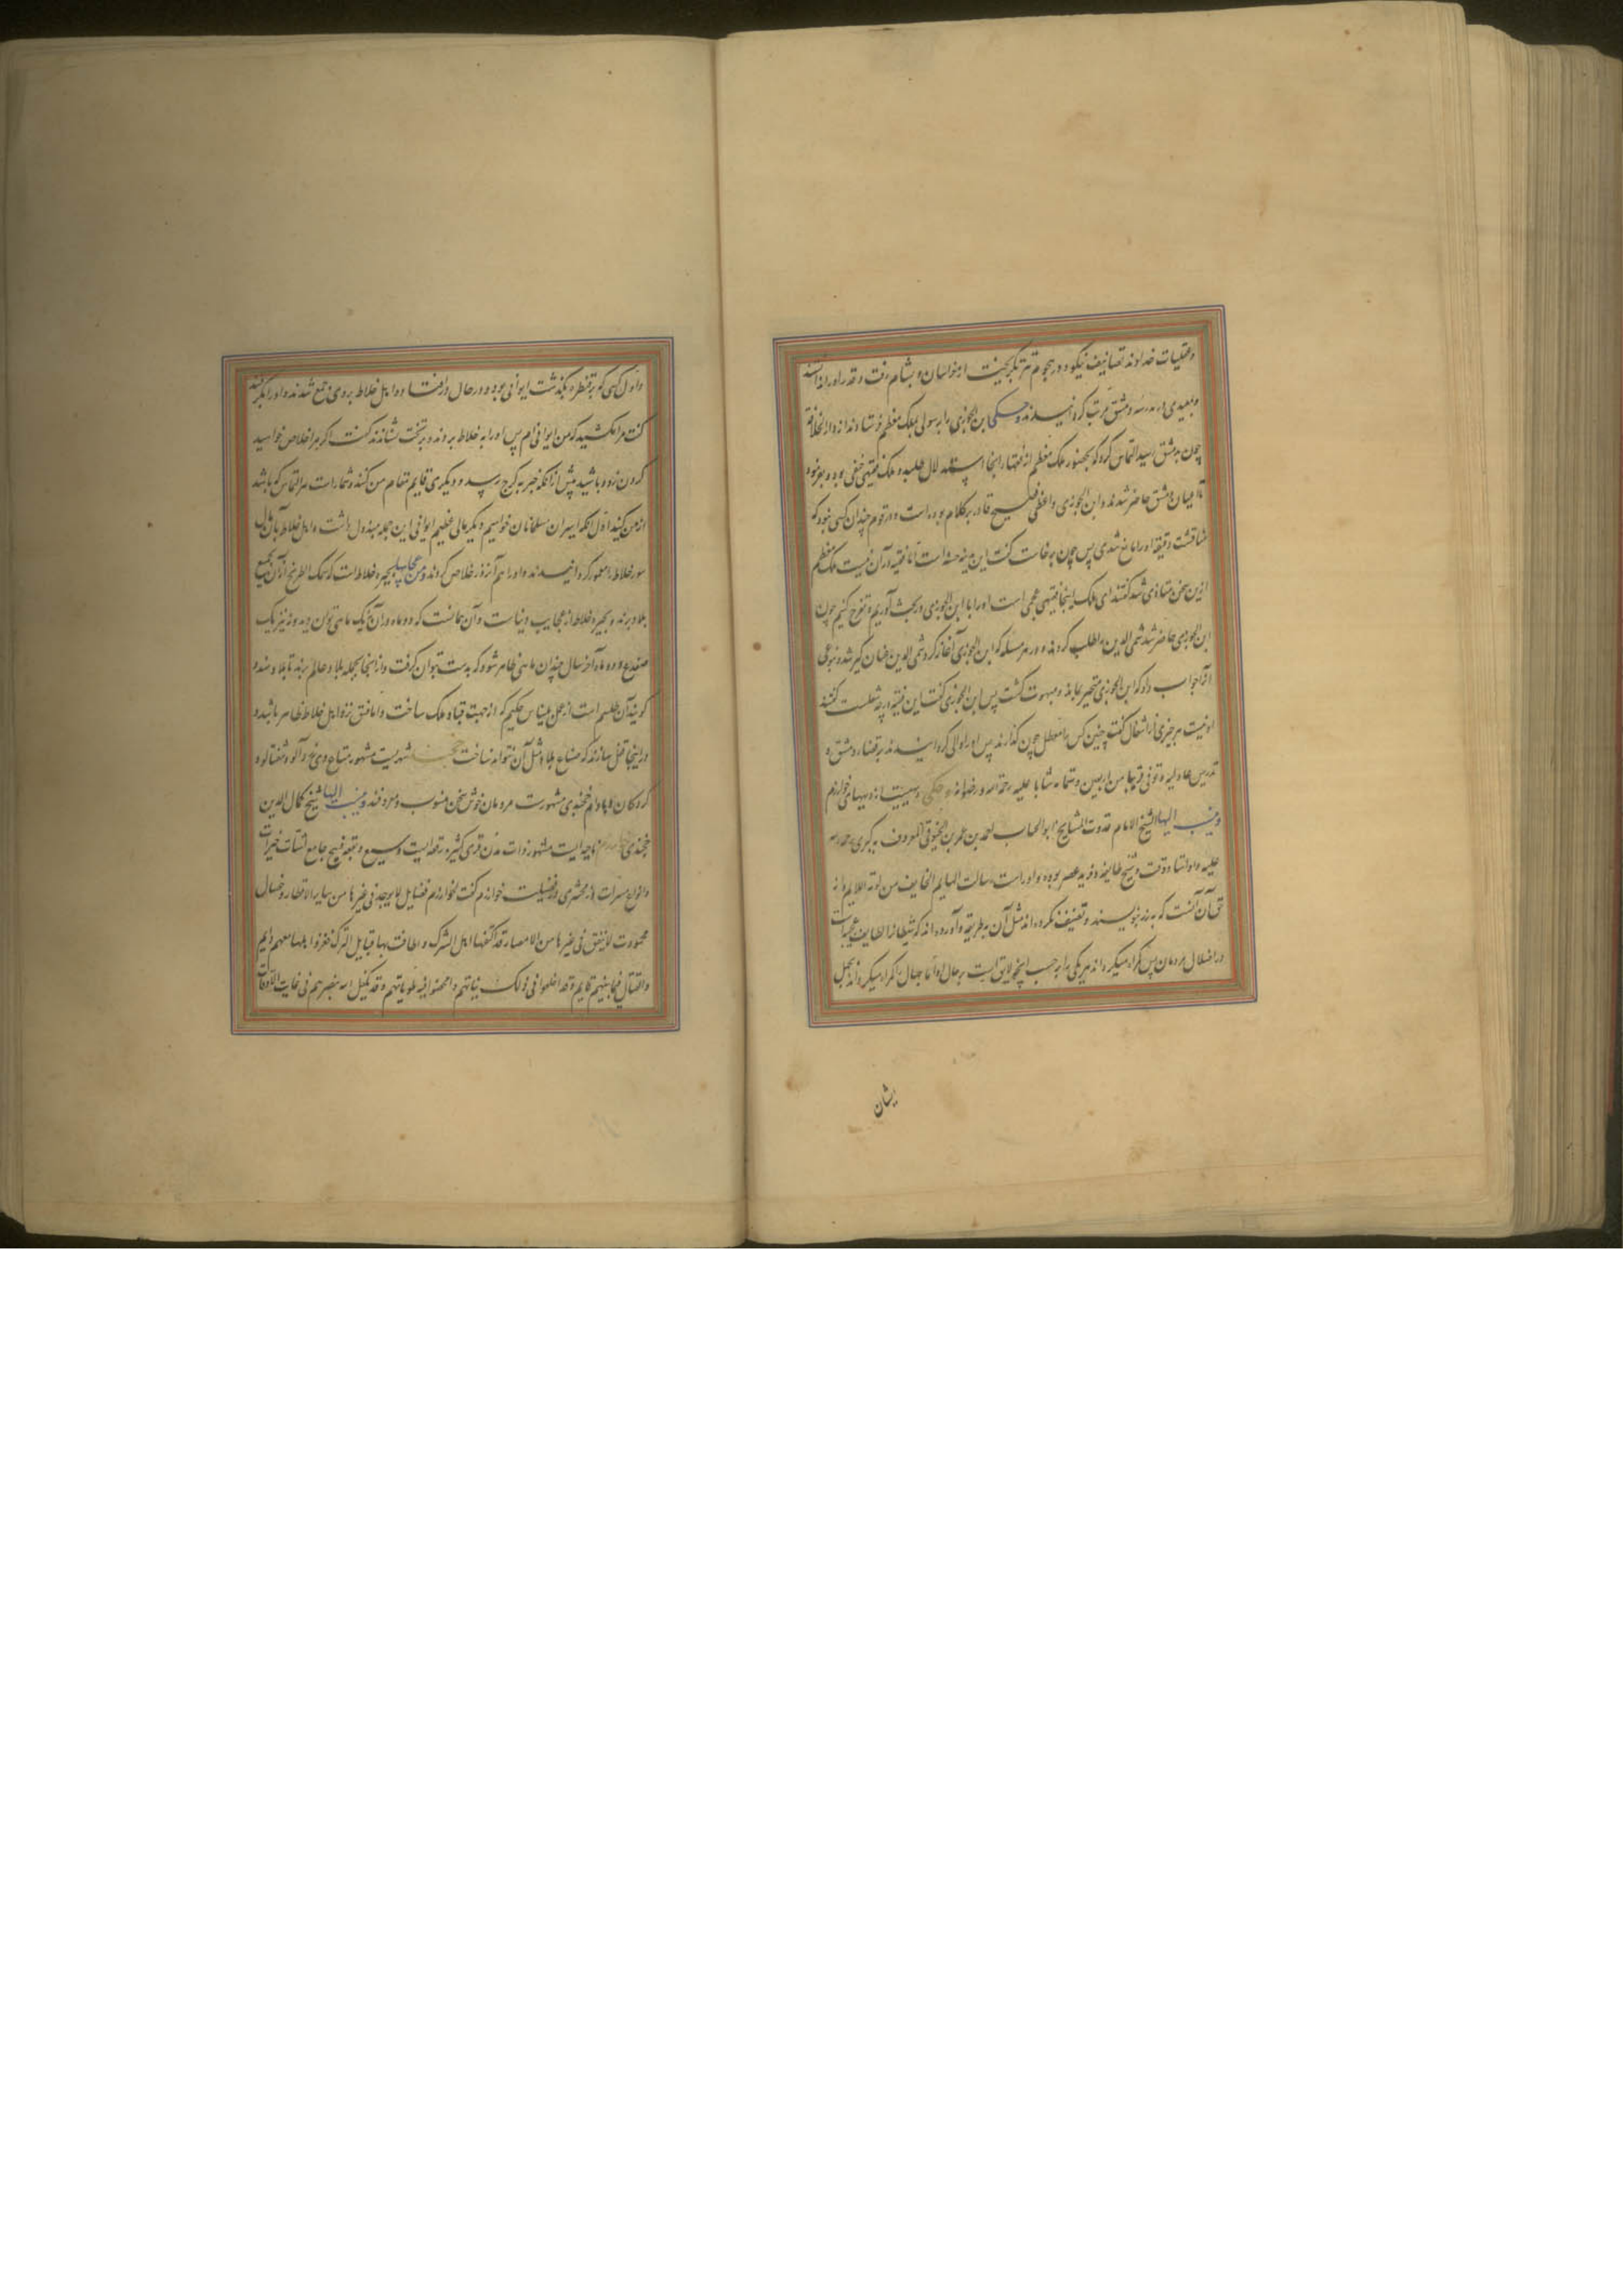 وعقلیات خداوند تصانیف نیکو و در هجوم تتر بگریخت از خراسان و بشام رفت و قدر او را ندانستند
دمشق مرتب کردانیدند و حکی ابن الجوزی را برسولی بملک معظم فرستادند از دار الخلافة
چون بدمشق رسید التماس کرد که بحضور ملک معظم از فقها اینجا استدلال و ملک فقیهی حنفی بود
میان دمشق حاضر شدند و ابن الجوزی واعظی فصیح قادر بر کلام بوده است و در قوم چندان کسی نبود که
مناقشت دقیقه او را مانع شدی پس چون برخاست گفت این مدینه حسنه است اما فقیه در آن نیست ملک معظم
ازین سخن متاذی شد گفتند ای ملک اینجا فقیهی عجمی است او را با ابن الجوزی در بحث آوریم و تفرج کنیم چون
ابن الجوزی حاضر شد شمس الدین را طلب کردند و در هر مسئله که ابن الجوزی آغاز کرد شمس الدین عنان کیر شد و بنوعی
آنرا جواب داد که ابن الجوزی متحیر بماند و مبهوت کشت پس ابن الجوزی گفت این فقیه بر چه شغلست گفتند
او نیست بر چیزی از اشغال گفت چنین کس را معطل چون گذارند پس او را والی کردانیدند بر قضاء دمشق و
تدریس عادلیه و توفی قریبا من اربعین و ستمائه شابا علیه رحمة الله و رضوانه
و ینسب الیها الشیخ الامام قدوت المشایخ ابو الجناب احمد بن عمر بن الخیوقی المعروف بکبری رحمة الله
علیه و او استاد وقت و شیخ طایفه و فرید عصر بوده و او را است رسالت الهایم الخایف من لومة اللایم و از
آنست که بزر بنویسند و تصنیف نکرده‌اند مثل آن بطریقه و آورده‌اند که شیطان را لطایف
در اضلال مردمان پس کمراه میکرداند هر یکی را بحسب آنچه لایق است بر حال او اما جهال را کمراه میکرداند بجهل
یشان
و اول کسی که بر قنطره بگذشت ایوانی بود و در حال در افتاد و اهل خلاط بروی جمع شدند و او را بگرفتند
گفت مرا مکشید که من ایوانی ام پس او را به خلاط بردند و بر تخت نشاندند گفت اگر مرا خلاص خواهید
کردن زود باشید پیش از آنکه خبر به کرج رسد و دیگری قایم مقام من کنند و شما را است هر التماس که باشد
از من کنید اول آنکه اسیران مسلمانان خواهیم و دیگر مالی عظیم ایوانی این جمله مبذول داشت و اهل خلاط بآن مال
سور خلاط را معمور کردانیدند و او را هم آن روز خلاص کردند و من عجایبها بحیره خلاط است که سمک الطریخ از آن بجمیع
بلاد برند و بحیره خلاط از عجایب دنیاست و آن چنانست که دو ماه در آن نه یک ماهی توان دید و نه نیز یک
ضفدع و ده ماه آخر سال چندان ماهی ظاهر شود که بدست بتوان گرفت و از اینجا بجمله بلاد عالم برند تا بلاد هند و
کویند آن طلسم است از عمل بلیناس حکیم که از جهت قباد ملک ساخت و امانفق نزد اهل خلاط ظاهر باشد و
در اینجا قفل سازند که صناع بلاد مثل آن نتوانند ساخت خجند شهریست مشهور
بادام خجندی مشهورست مردمان خوش سخن منسوب و معروفند و ینسب الیها شیخ کمال الدین
خجندی خوارزم ناحیه ایست مشهور ذات مدن قری کثیره رقعه ایست وسیع و بقعه فسیح جامع اشتات خیرات
و انواع مسرات زمخشری در فضیلت خوارزم گفت لخوارزم فضایل لا یوجد فی غیرها من سایر الاقطار و خصال
محمودت لا یتفق فی غیرها من الامصار قد اکتنفها اهل الشرک و اطافت بها قبایل الترک فغزو اهلها معهم دایم
و القتال فیما بینهم قایم و قد اخلصوا فی ذلک نیاتهم و امحضوا فیه طویاتهم و قد تکفل الله بنصرهم فی غایت الاوقات